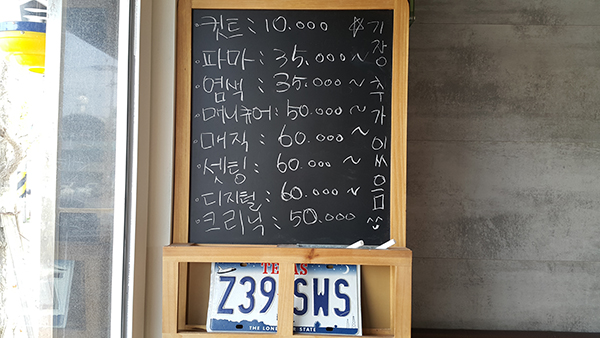 ·컷트: 10.000
·파마: 35.000~
·염색: 35.000~
·매니큐어: 50.000~
·매직: 60.000~
·셋팅: 60.000~
·디지털: 60.000~
·크리닉: 50.000
※기장추가있씀음
TEXAS
Z39 SWS
THE LONE STAR STATE